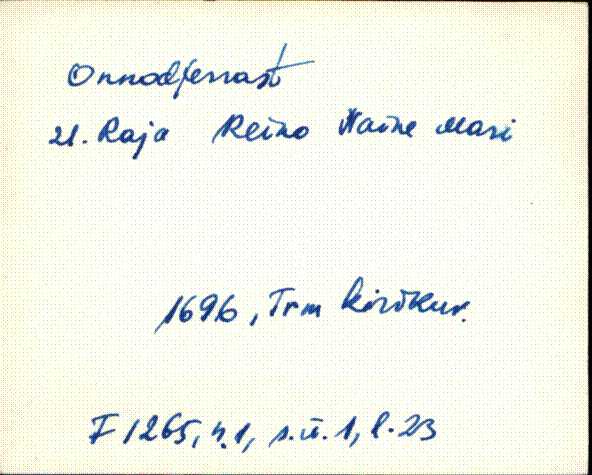 Onnodferrast
21. Raja Reino Naine Mari
1696, Trm kirikur.
F 1265, n.1, s.ü. 1, l. 23